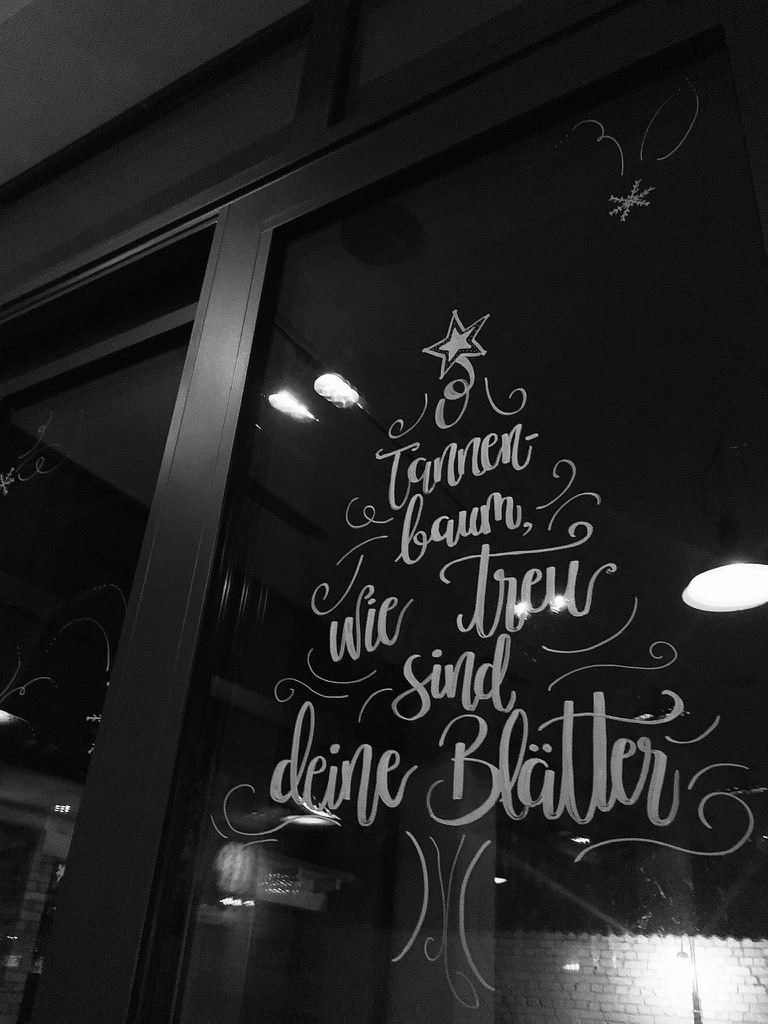 O
Tannen-
baum,
wie treu
sind
deine Blätter